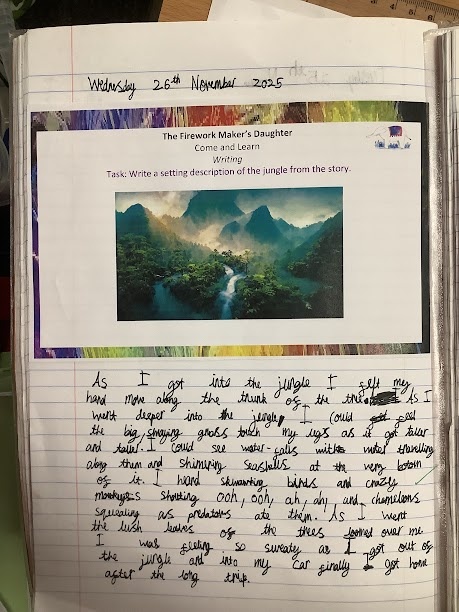 Wednesday 26th November 2025
The Firework Maker's Daughter
Come and Learn
Writing
Task: Write a setting description of the jungle from the story.
As I got into the jungle I felt my
hand move along the trunk of the tree. As I
went deeper into the jungle, I could feel
the big, swaying grass touch my legs as it got taller
and taller. I could see water-falls with water travelling
along them and shimuring seashells at the very botom
of it. I heard skwawking birds and crazy
monkeys shouting ooh, ooh, ah, ah, and chameleons
squealing as predators ate them. As I went
the lush leaves of the trees loomed over me.
I was feeling so sweaty as I got out of
the jungle and into my car finally I got home
after the long trip.